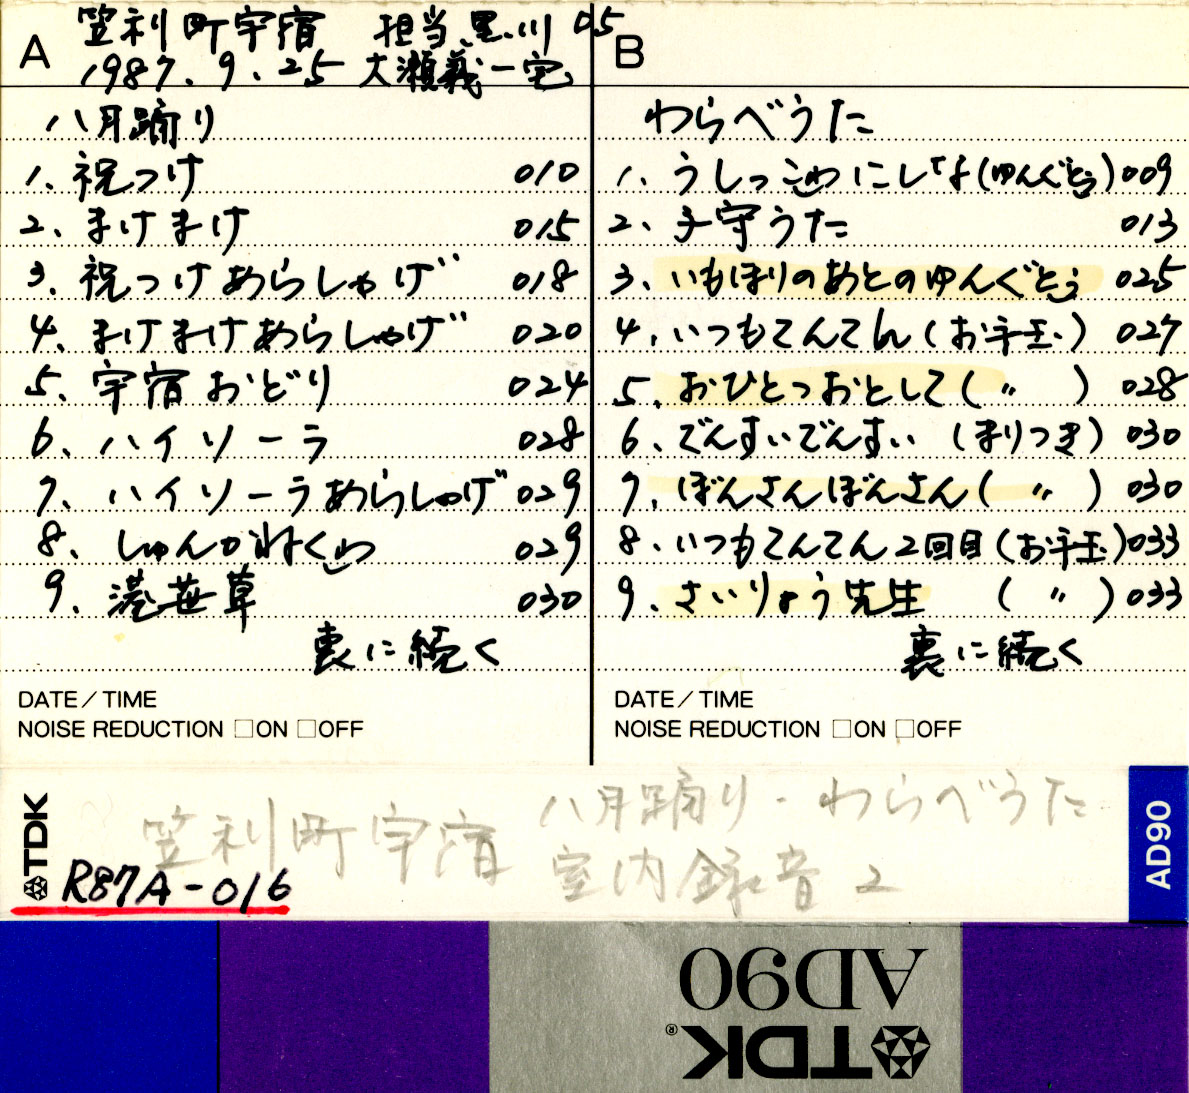 A 笠利町宇宿 担当 黒川 05
1987.9.25 大瀬義一宅
八月踊り
1. 祝つけ 010
2. まけまけ 015
3. 祝つけあらしゃげ 018
4. まけまけあらしゃげ 020
5. 宇宿おどり 024
6. ハイソーラ 028
7. ハイソーラあらしゃげ 029
8. しゅんかねくゎ 029
9. 港笹草 030
裏に続く
DATE/TIME
NOISE REDUCTION □ON □OFF
B
わらべうた
1. うしっこゎにしなよ(ゆんぐとぅ) 009
2. 子守うた 013
3. いもほりのあとのゆんぐとぅ 025
4. いつもてんてん(お手玉) 027
5. おひとつおとして(〃) 028
6. でんすいでんすい(まりつき) 030
7. ぼんさんぼんさん(〃) 030
8. いつもてんてん2回目(お手玉) 033
9. さいりょう先生(〃) 033
裏に続く
DATE/TIME
NOISE REDUCTION □ON □OFF
TDK
R87A-016
笠利町宇宿
八月踊り・わらべうた
室内録音 2
AD90
AD90
TDK®